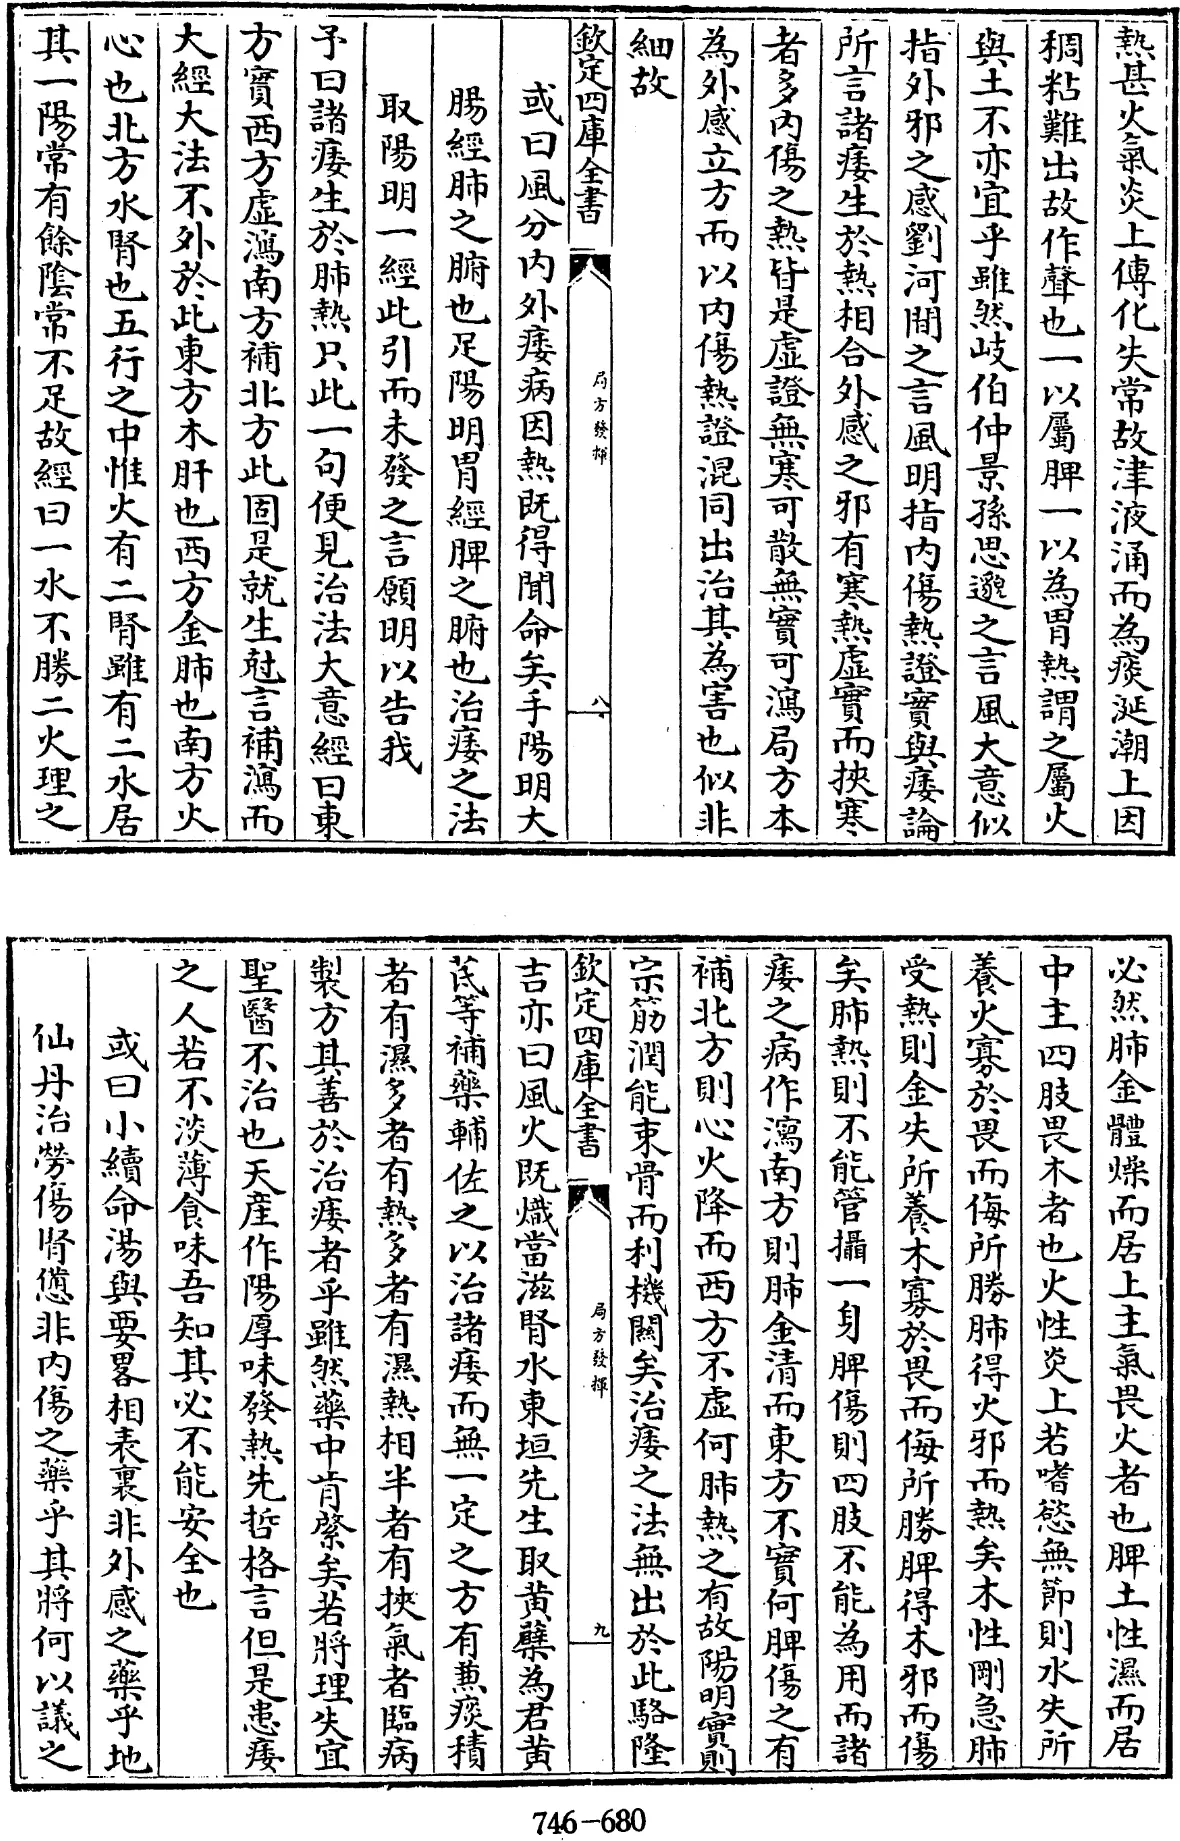 熱甚火氣炎上傳化失常故津液涌而為痰涎潮上因
稠粘難出故作聲也一以屬脾一以為胃熱謂之屬火
與土不亦宜乎雖然岐伯仲景孫思邈之言風大意似
指外邪之感劉河間之言風明指内傷熱證實與痿論
所言諸痿生於熱相合外感之邪有寒熱虛實而挾寒
者多内傷之熱皆是虛證無寒可散無實可瀉局方本
為外感立方而以内傷熱證混同出治其為害也似非
細故
欽定四庫全書
局方發揮
八
或曰風分内外痿病因熱既得聞命矣手陽明大
腸經肺之腑也足陽明胃經脾之腑也治痿之法
取陽明一經此引而未發之言願明以告我
予曰諸痿生於肺熱只此一句便見治法大意經曰東
方實西方虛瀉南方補北方此固是就生尅言補瀉而
大經大法不外於此東方木肝也西方金肺也南方火
心也北方水腎也五行之中惟火有二腎雖有二水居
其一陽常有餘陰常不足故經曰一水不勝二火理之
必然肺金體燥而居上主氣畏火者也脾土性濕而居
中主四肢畏木者也火性炎上若嗜慾無節則水失所
養火寡於畏而侮所勝肺得火邪而熱矣木性剛急肺
受熱則金失所養木寡於畏而侮所勝脾得木邪而傷
矣肺熱則不能管攝一身脾傷則四肢不能為用而諸
痿之病作瀉南方則肺金清而東方不實何脾傷之有
補北方則心火降而西方不虛何肺熱之有故陽明實則
宗筋潤能束骨而利機關矣治痿之法無出於此駱隆
欽定四庫全書
局方發揮
九
吉亦曰風火既熾當滋腎水東垣先生取黄蘗為君黄
芪等補藥輔佐之以治諸痿而無一定之方有兼痰積
者有濕多者有熱多者有濕熱相半者有挾氣者臨病
製方其善於治痿者乎雖然藥中肯綮矣若將理失宜
聖醫不治也天産作陽厚味發熱先哲格言但是患痿
之人若不淡薄食味吾知其必不能安全也
或曰小續命湯與要畧相表裏非外感之藥乎地
仙丹治勞傷腎憊非内傷之藥乎其將何以議之
746-680